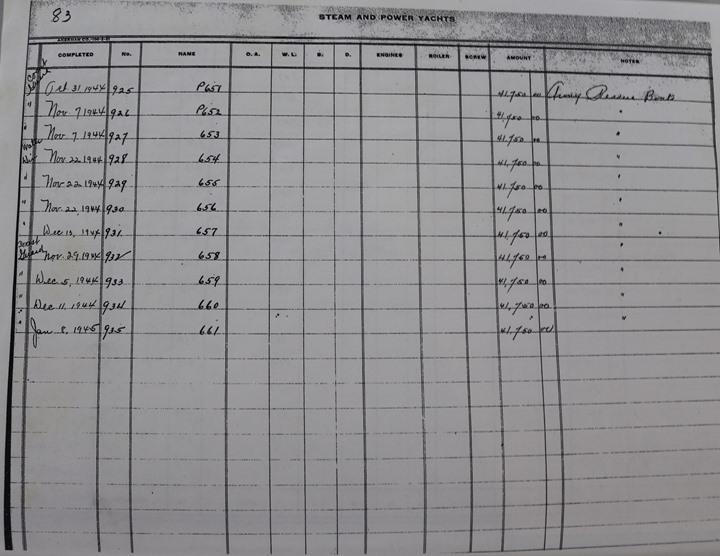 83
STEAM AND POWER YACHTS
COMPLETED No. NAME O. A. W. L. B. D. ENGINES BOILER SCREW AMOUNT NOTES
Coast Oct 31 1944 925 P651 41,750 00 Army Rescue Boats
" Nov 7 1944 926 P652 41,750 00 "
" Nov. 7, 1944 927 653 41,750 00 "
Water Div Nov 22 1944 928 654 41,750 00 "
" Nov 22 1944 929 655 41,750 00 "
" Nov 22, 1944 930 656 41,750 00 "
" Dec 13, 1944 931 657 41,750 00 "
Coast Guard Nov. 29, 1944 932 658 41,750 00 "
" Dec 5, 1944 933 659 41,750 00 "
" Dec 11, 1944 934 660 41,750 00 "
" Jan 8, 1945 935 661 41,750 00 "